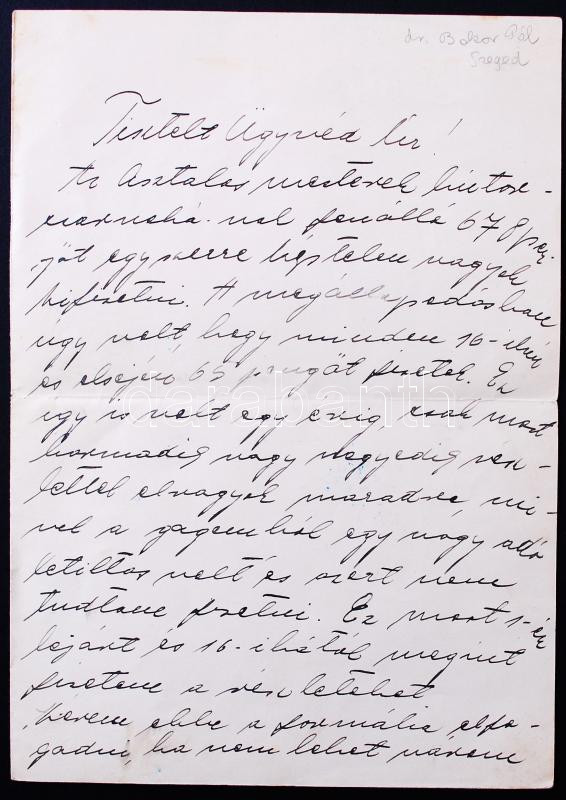 dr. Bokor Pál
Szeged
Tisztelt Ügyvéd Úr!
Az Asztalos mesterek bútor-
csarnoká-nál fenálló 678 pen-
gőt egyszerre képtelen vagyok
kifizetni. A megállapodásban
úgy volt hogy minden 16-ikán
és elsején 65 pengőt fizetek. Ez
igy is volt egy ezig csak most
harmadig vagy negyedig rész-
lettel elvagyok maradva, mi-
vel a gágemból egy nagy adó
letiltás volt és azért nem
tudtam fizetni. Ez most 1-én
lejárt és 16-ikától megint
fizetem a részleteket
Kérem ebbe a formába elfo-
gadni, ha nem lehet várom
darabanth